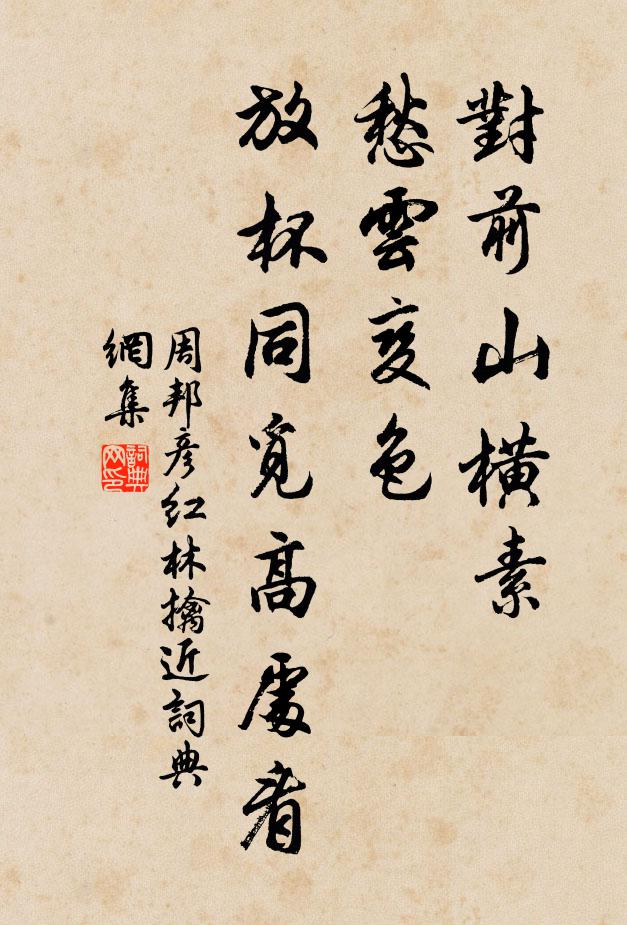 對前山橫素
愁雲变色
放杯同覓高處看
周邦彥红林擒近詞典
網集
詞典网印